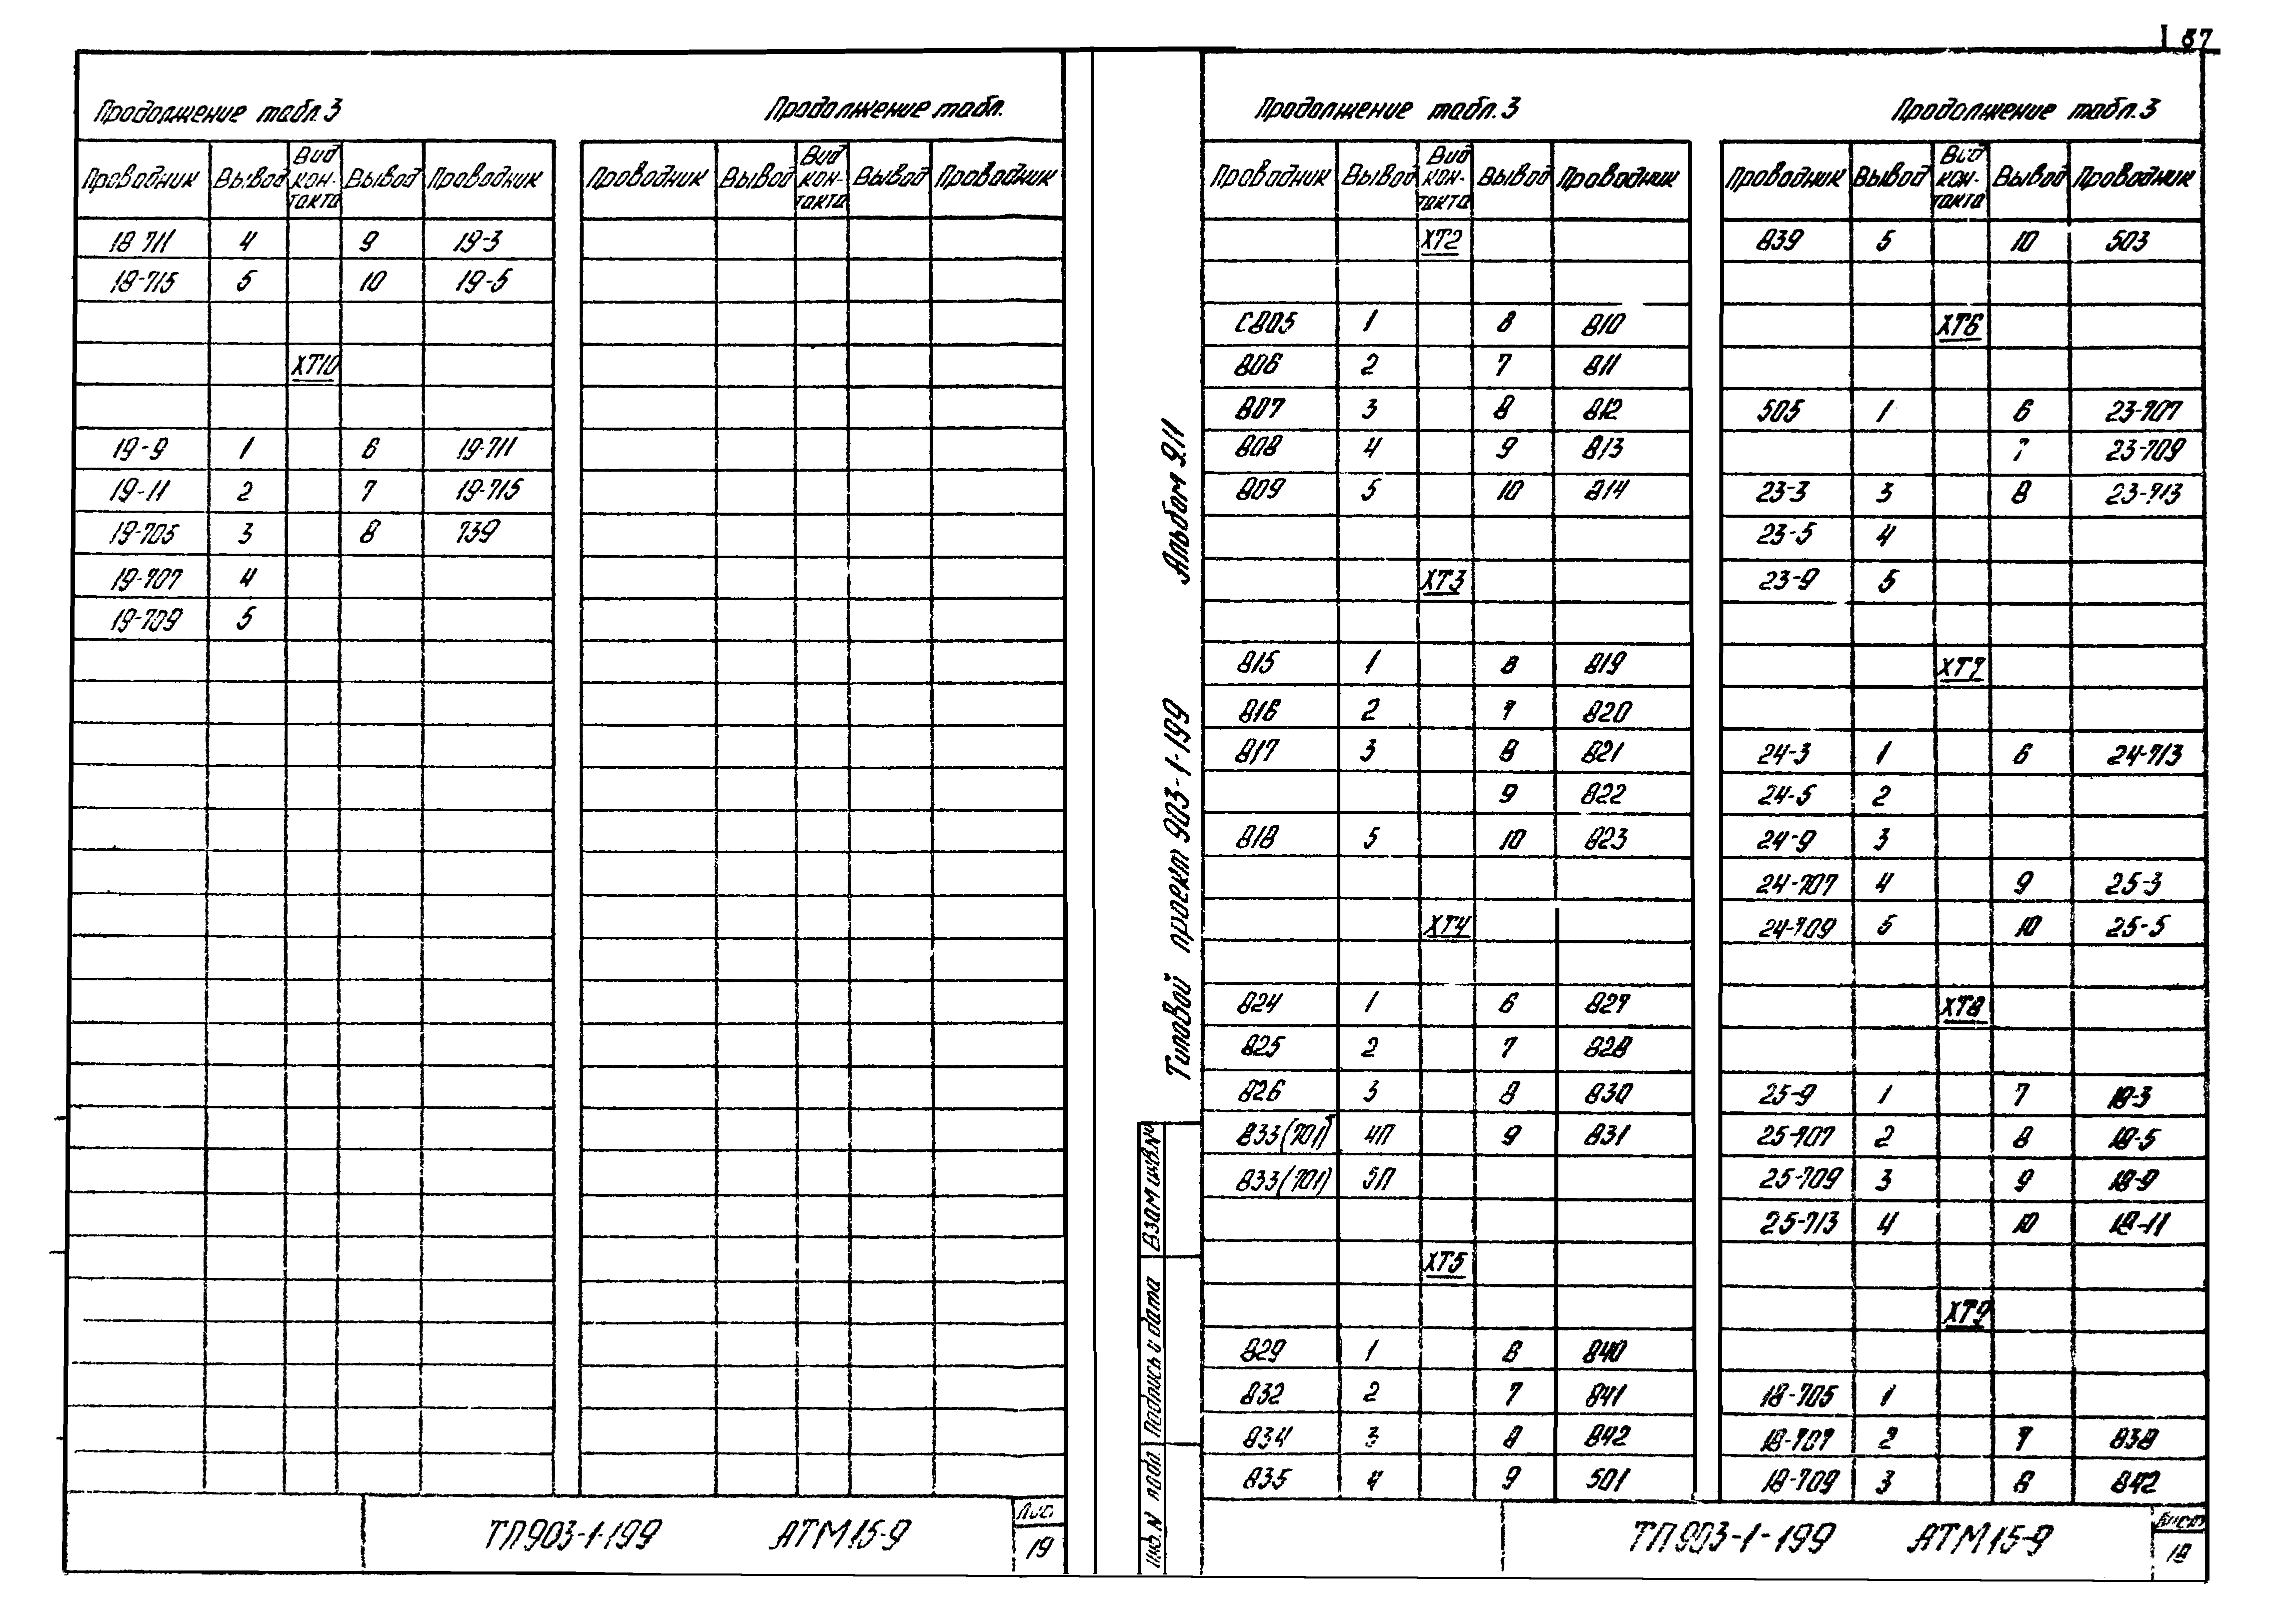 I 57
Продолжение табл 3
Продолжение табл.
Проводник Вывод Вид кон-такта Вывод Проводник
Проводник Вывод Вид кон-такта Вывод Проводник
18 711 4 9 19-3
18-715 5 10 19-5
ХТ10
19-9 1 6 19-711
19-11 2 7 19-715
19-705 3 8 739
19-707 4
19-709 5
ТП903-1-199 АТМ15-9
Лист
19
Альбом 9.11
Типовой проект 903-1-199
Взам инв.№
Подпись и дата
Инв.N подл.
Продолжение табл.3
Проводник Вывод Вид кон-такта Вывод Проводник
ХТ2
С805 1 8 810
806 2 7 811
807 3 8 812
808 4 9 813
809 5 10 814
ХТ3
815 1 8 819
816 2 7 820
817 3 8 821
9 822
818 5 10 823
ХТ4
824 1 6 827
825 2 7 828
826 3 8 830
833(701) 4П 9 831
833(701) 5П
ХТ5
829 1 8 840
832 2 7 841
834 3 8 842
835 4 9 501
Продолжение табл.3
Проводник Вывод Вид кон-такта Вывод Проводник
839 5 10 503
ХТ6
505 1 6 23-707
7 23-709
23-3 3 8 23-713
23-5 4
23-9 5
ХТ7
24-3 1 6 24-713
24-5 2
24-9 3
24-707 4 9 25-3
24-709 5 10 25-5
ХТ8
25-9 1 7 18-3
25-707 2 8 18-5
25-709 3 9 18-9
25-713 4 10 18-11
ХТ9
18-705 1
18-707 2 7 838
18-709 3 8 842
ТП903-1-199 АТМ15-9
Лист
18